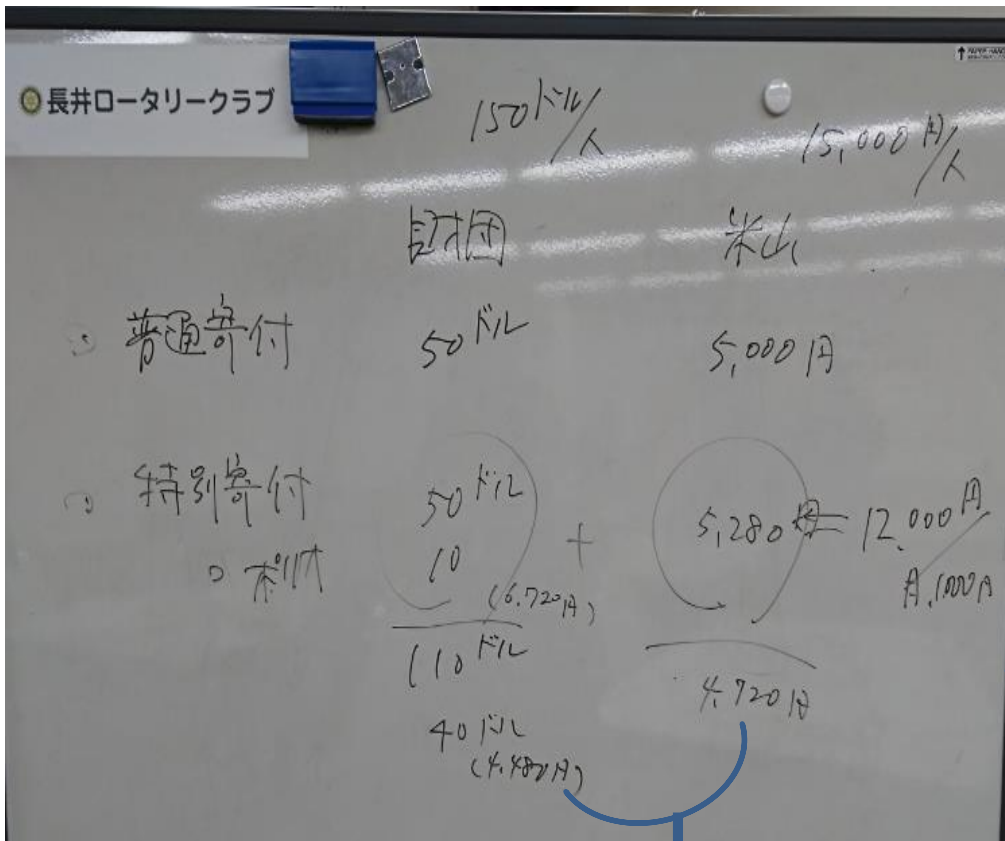 長井ロータリークラブ
150ドル/人
15,000円/人
財団
米山
普通寄付
50ドル
5,000円
特別寄付
50ドル
+
5,280円 ⇐ 12,000円/
月,1000円
○ポリオ
10
(6.720円)
110ドル
4,720円
40ドル
(4.480円)